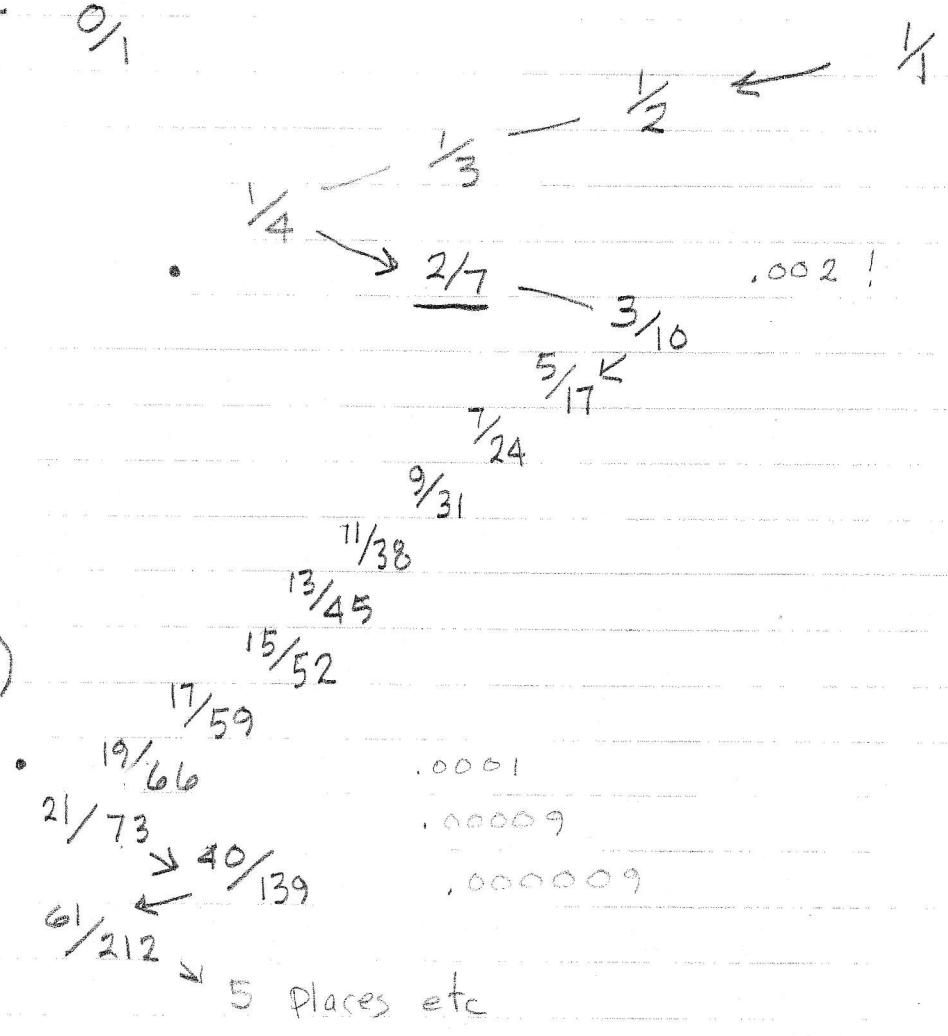 0/1 1/1
1/2
1/3
1/4
2/7 .002 !
3/10
5/17
7/24
9/31
11/38
13/45
15/52
17/59
19/66 .0001
21/73 .00009
40/139 .000009
61/212
5 places etc